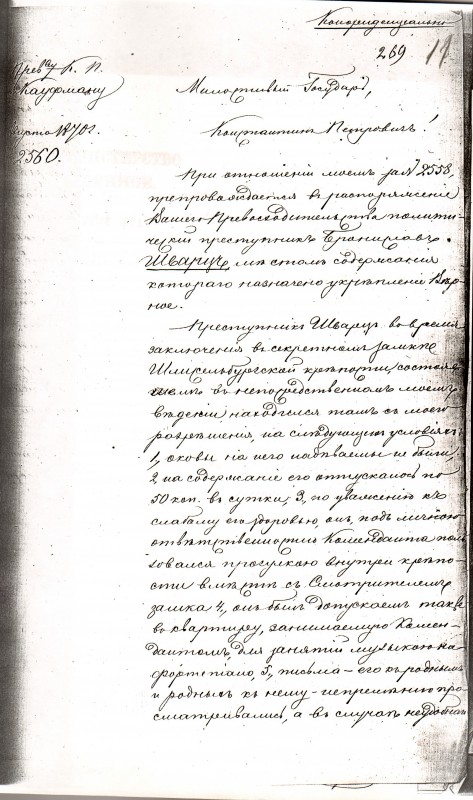 Конфиденціально
269 11
Прев-ву К. П.
Кауфману
Августа 1870 г.
2560.
Милостивый Государь,
Константинъ Петровичъ!
При отношеніи моемъ за № 2558,
препровождается въ распоряженіе
Вашего Превосходительства полити-
ческій преступникъ Брониславъ
Шварце, мѣстомъ содержанія
котораго назначено укрѣпленіе Вѣр-
ное.
Преступникъ Шварце во время
заключенія въ секретномъ замкѣ
Шлиссельбургской крѣпости, состояв-
шемъ въ непосредственномъ моемъ
вѣденіи находился тамъ съ моего
разрѣшенія, на слѣдующихъ условіяхъ:
1, оковы на него набиваемы не были;
2 на содержаніе его отпускалось по
50 коп. въ сутки; 3, по уваженію къ
слабому его здоровью, онъ, подъ личною
отвѣтственностію Коменданта поль-
зовался прогулкою внутри крѣпо-
сти вмѣстѣ съ Смотрителемъ
замка 4, онъ былъ допускаемъ также
въ квартиру, занимаемую Комен-
дантомъ, для занятій музыкою на
фортепіано, 5, письма – его къ роднымъ
и родныхъ къ нему – непремѣнно про-
сматривались, а въ случаѣ